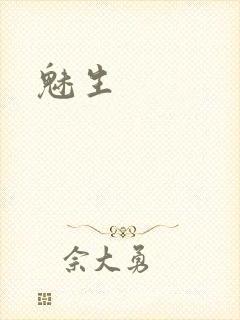 魅生
余大勇